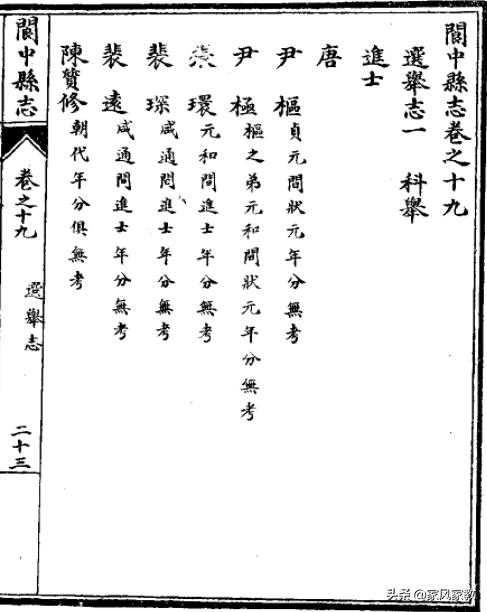 閬中縣志卷之十九
選舉志一 科舉
進士
唐
尹樞 貞元間狀元年分無考
尹極 樞之弟元和間狀元年分無考
環 元和間進士年分無考
裴琛 咸通間進士年分無考
裴遠 咸通間進士年分無考
陳贊修 朝代年分俱無考
閬中縣志 卷之十九 選舉志 二十三
头条 @家风家教